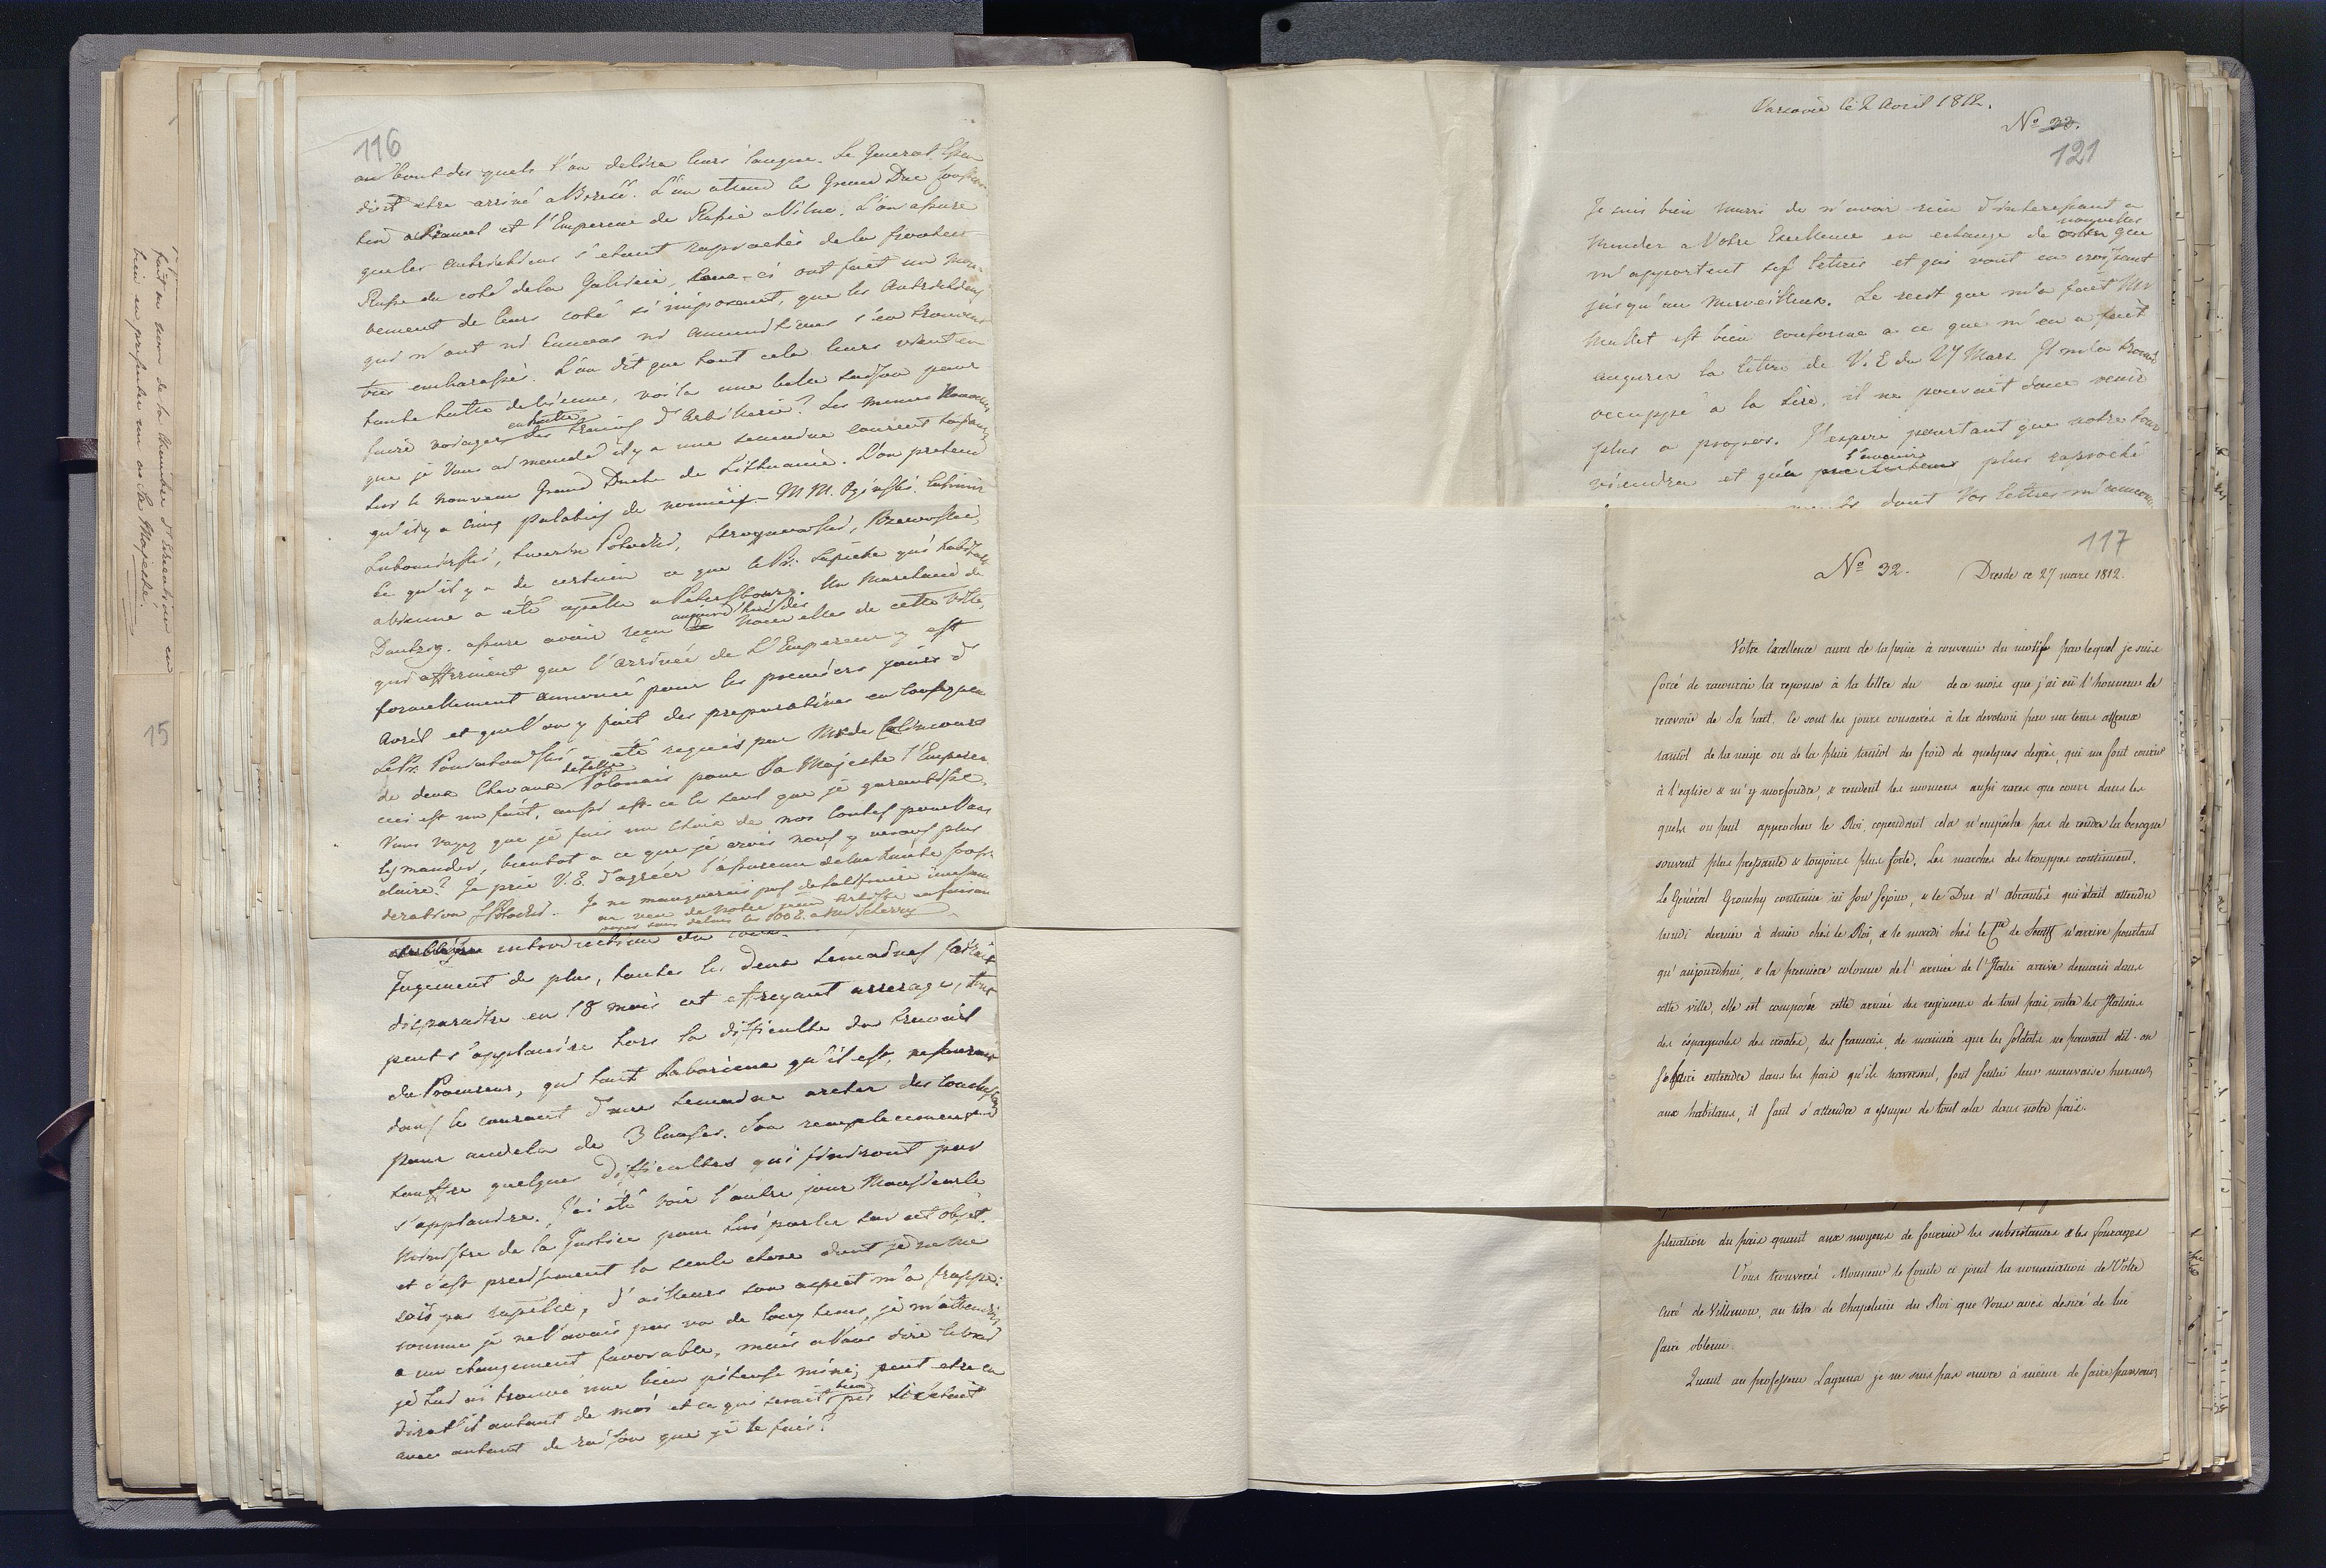 116
au bout des quels l'on delira leurs langue. Le General Essen
dist etre arrivé a Brzesć. L'on attend le Grand Duc Constan
tin a et l'Empereur de Russie a Vilna. L'on assure
que les Autrichiens s'etant raprochés de la frontiere
Russe du coté de la Galicie, ceux-ci ont fait un mou-
vement de leurs coté si imposant, que les Autrichiens
qui n'ont ni Canons ni ammunitions s'en trouvent
tres embarassés. L'on dit que tout cela leurs vient en
toute hatte de Vienne, voila une belle saison pour
faire voiager en hatte des trains d'Artillerie? Les memes Nouvelles
que je Vous ai mandé il y a une semaine courent toujours
sur le nouveau Grand Duché de Lithuanie. L'on pretend
qu'il y a cinq palatins de nommés. M M. Oginski, Casimir
Lubomirski, Severin Potocki,
Ce qu'il y a de certain ce que le Pr: Sapieha qui habitait
a Vienne a été apellé a Petersbourg. Un Marchand de
Dantzig assure avoir reçu aujourd'hui des Nouvelles de cette Ville,
qui afferment que l'arrivée de L'Empereur y est
formellement annoncé pour les premiers jours d'
Avril et que l'on y fait des preparatives en consequen
Le Pr: Poniatowski a été requis par Mr de Colincourt
de deux Chevaux de selle Polonais pour Sa Majesté l'Empereur
ceci est un fait, aussi est-ce le seul que je garantisse.
Vous voyez que je fais un choix de nos contes pour Vous
les mander, bientot a ce que je crois nous y verons plus
claire? Je prie V. E. d'agréer l'assurance de la haute consi
deration S Potocki. Je ne manquerais pas de satisfaire
aux vœu de Notre jeune Artiste en faisant
introduction du
Jugement de plus, toutes les deux semaines faira
disparaitre en 18 mois cet effrayant arrerage, tout
peut s'applanire hors la difficulté du travail
du Procureur, qui tout laborieux qu'il est,
dans le courant d'une semaine
pour audela de 3 causes. Son remplacement
souffre quelques difficultés qui finiront par
s'applandre. J'ai été voir l'autre jour Monsieur le
Ministre de la Justice pour lui parler sur cet objet.
et c'est precisement la seule chose dont je ne me
sois pas rapellé, d'ailleurs son aspect m'a frappé:
comme je ne l'avais pas vu de long tems, je m'attendais
a un changement favorable, mais a Vous dire le vrai
je lui ai trouvé une bien piteuse mine; peut etre en
dirat'il autant de moi et ce qui serait bien pis si c'etait
avec autant de raison que je le fais?
fait au nom de la Chambre d'Education en
bien en presenter un a Sa Majesté.
15
Varsovie le 2 Avril 1812.
Nº 33.
121
Je suis bien marri de n'avoir rien d'interessant a
mander a Votre Excellence en echange de nouvelles que
m'apportent ses lettres et qui vont en croissant
jusqu'au merveilleux. Le recit que m'a fait Mr
Mallet est bien conforme a ce que m'en a fait
augurer la lettre de V. E du 27 Mars. Il m'a trouvé
occuppé a la lire, il ne pouvait donc venir
plus a propos. J'espere pourtant que notre tour
viendra et qu'a l'avenir plus raproché
dont Vos lettres m'
117
Nº 32. Dresde ce 27 mars 1812.
Votre Excellence aura de la peine à convenir du motif par lequel je suis
forcé de racourcir la reponse à la lettre du de ce mois que j'ai eü l'honneur de
recevoir de Sa part. Ce sont les jours consacrés à la devotion par un tems affreux
tantot de la neige ou de la pluie tantot du froid de quelques degrés, qui me font courir
à l'eglise & m'y morfondre, & rendent les momens aussi rares que court dans les
quels on peut approcher le Roi, cependant cela n'empêche pas de rendre la besogne
souvent plus pressante & toujours plus forte. Les marches des trouppes continuent.
Le Général Grouchy continue ici son sejour, & le Duc d'Abrantés qui était attendu
lundi dernier à diner chés le Roi, & le mardi chés le Cte de Senfft n'arrive pourtant
qu'aujourdhui, & la premiere colonne de l'armée de l'Italie arrive demain dans
cette ville, elle est composée cette armée des regimens de tout païs, outre les Italiens
des éspagnoles des croates, des francais, de maniere que les soldats ne pouvant dit-on
se faire entendre dans les païs qu'ils traversent, font sentir leur mauvaise humeur
aux habitans, il faut s'attendre a essuyer de tout cela dans notre païs.
situation du païs quant aux moyens de fournir les subsistances & les fourages
Vous trouverés Monsieur le Comte ci joint la nomination de Votre
Curé de Villanow, au titre de chapelain du Roi que Vous aviés desiré de lui
faire obtenir.
Quant au professeur Laguna je ne suis pas encore à même de faire parvenir